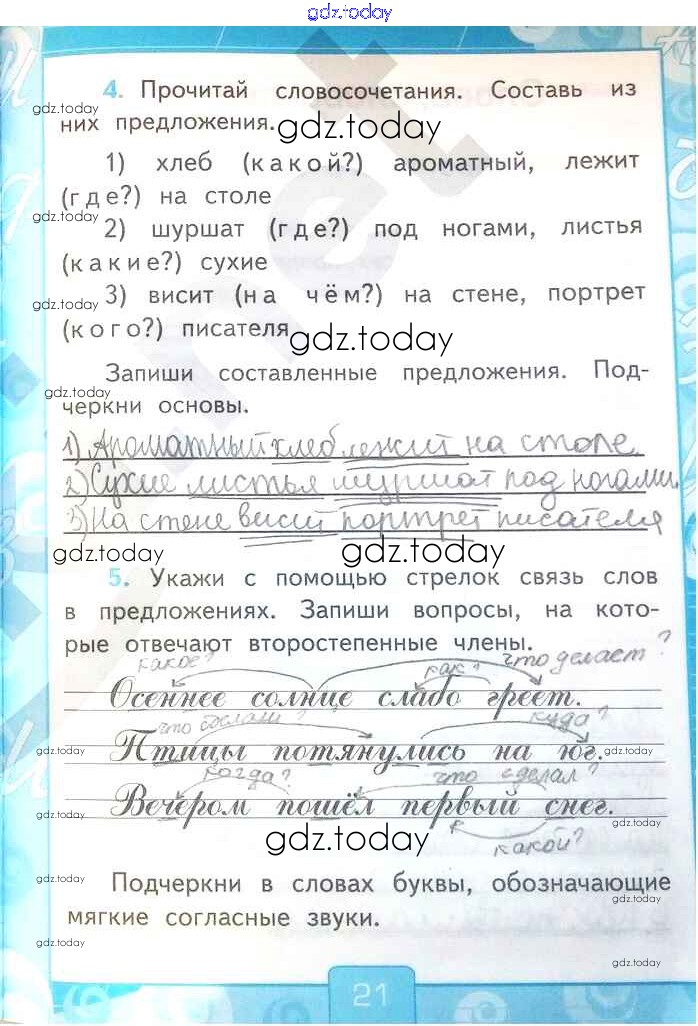 gdz.today
4. Прочитай словосочетания. Составь из
gdz.today
них предложения.
gdz.today
1) хлеб (какой?) ароматный, лежит
(где?) на столе
gdz.today
2) шуршат (где?) под ногами, листья
(какие?) сухие
3) висит (на чём?) на стене, портрет
gdz.today
(кого?) писателя
gdz.today
Запиши составленные предложения. Под-
gdz.today
черкни основы.
1) Ароматный хлеб лежит на столе.
2) Сухие листья шуршат под ногами.
3) На стене висит портрет писателя
gdz.today
gdz.today
5. Укажи с помощью стрелок связь слов
в предложениях. Запиши вопросы, на кото-
рые отвечают второстепенные члены.
какое? как? что делает?
Осеннее солнце слабо греет.
что сделали? куда?
Птицы потянулись на юг.
gdz.today
gdz.today
когда? что сделал?
Вечером пошёл первый снег.
gdz.today
gdz.today
gdz.today
какой?
Подчеркни в словах буквы, обозначающие
gdz.today
gdz.today
мягкие согласные звуки.
gdz.today
gdz.today
21